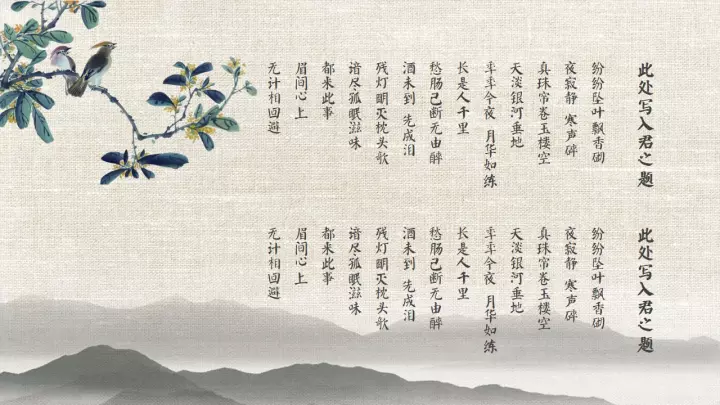 此处写入君之题
纷纷坠叶飘香砌
夜寂静 寒声碎
真珠帘卷玉楼空
天淡银河垂地
年年今夜 月华如练
长是人千里
愁肠已断无由醉
酒未到 先成泪
残灯明灭枕头欹
谙尽孤眠滋味
都来此事
眉间心上
无计相回避
此处写入君之题
纷纷坠叶飘香砌
夜寂静 寒声碎
真珠帘卷玉楼空
天淡银河垂地
年年今夜 月华如练
长是人千里
愁肠已断无由醉
酒未到 先成泪
残灯明灭枕头欹
谙尽孤眠滋味
都来此事
眉间心上
无计相回避